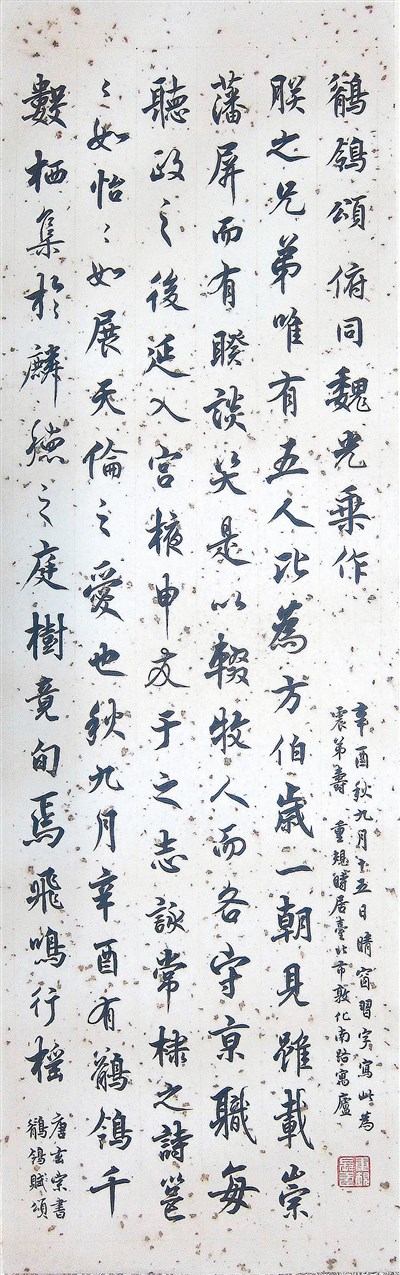 鶺鴒頌 俯同魏光乘作
辛酉秋九月十五日晴窗習字寫此為
震弟壽 重規時居臺北市敦化南路寓廬
朕之兄弟唯有五人比為方伯歲一朝見雖載崇
藩屏而有暌談笑是以輟牧人而各守京職每
聽政之後延入宮掖申友于之志詠常棣之詩邕
〻如怡〻如展天倫之愛也秋九月辛酉有鶺鴒千
數栖集於麟德之庭樹竟旬焉飛鳴行榣
唐玄宗書
鶺鴒賦頌